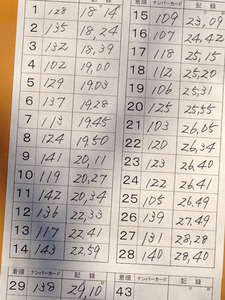 1 128 18,14
2 135 18,24
3 132 18,39
4 102 19,00
5 129 19,03
6 137 19,28
7 113 19,45
8 124 19,50
9 141 20,11
10 119 20,27
11 142 20,34
12 136 22,33
13 117 22,41
14 143 22,59
着順 ナンバーカード 記録
15 109 23,09
16 107 24,42
17 118 25,15
18 112 25,20
19 106 25,31
20 125 25,55
21 103 26,05
22 120 26,34
23 123 26,40
24 122 26,41
25 105 26,49
26 139 27,49
27 131 28,28
28 140 28,40
着順 ナンバーカード 記録
29 138 29,10
着順 ナンバーカード 記録
43